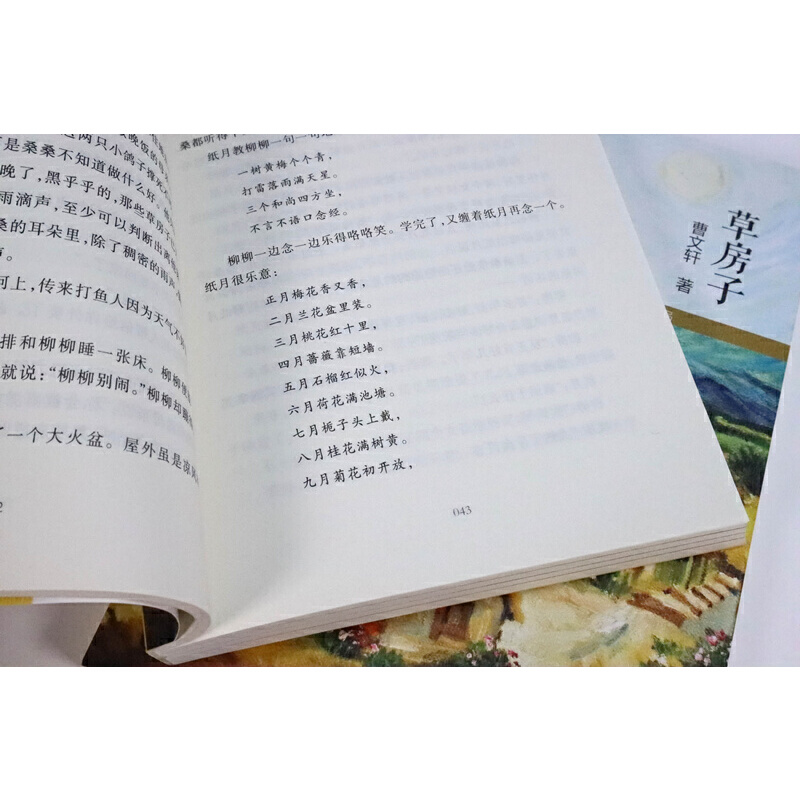 两只小鸽子撑死
是桑桑不知道做什么好。
晚了,黑乎乎的,那些草房子
雨滴声,至少可以判断出
桑的耳朵里,除了稠密的雨
声。
河上,传来打鱼人因为天气不
排和柳柳睡一张床。柳柳
就说:“柳柳别闹。”柳柳却
了一个大火盆。屋外虽是凉
2
桑都听得
纸月教柳柳一句一句地
一树黄梅个个青,
打雷落雨满天星。
三个和尚四方坐,
不言不语口念经。
柳柳一边念一边乐得咯咯笑。学完了,又缠着纸月再念一个。
纸月很乐意:
正月梅花香又香,
二月兰花盆里装。
三月桃花红十里,
四月蔷薇靠短墙。
五月石榴红似火,
六月荷花满池塘。
七月栀子头上戴,
八月桂花满树黄。
九月菊花初开放,
043
草房子
曹文轩 著